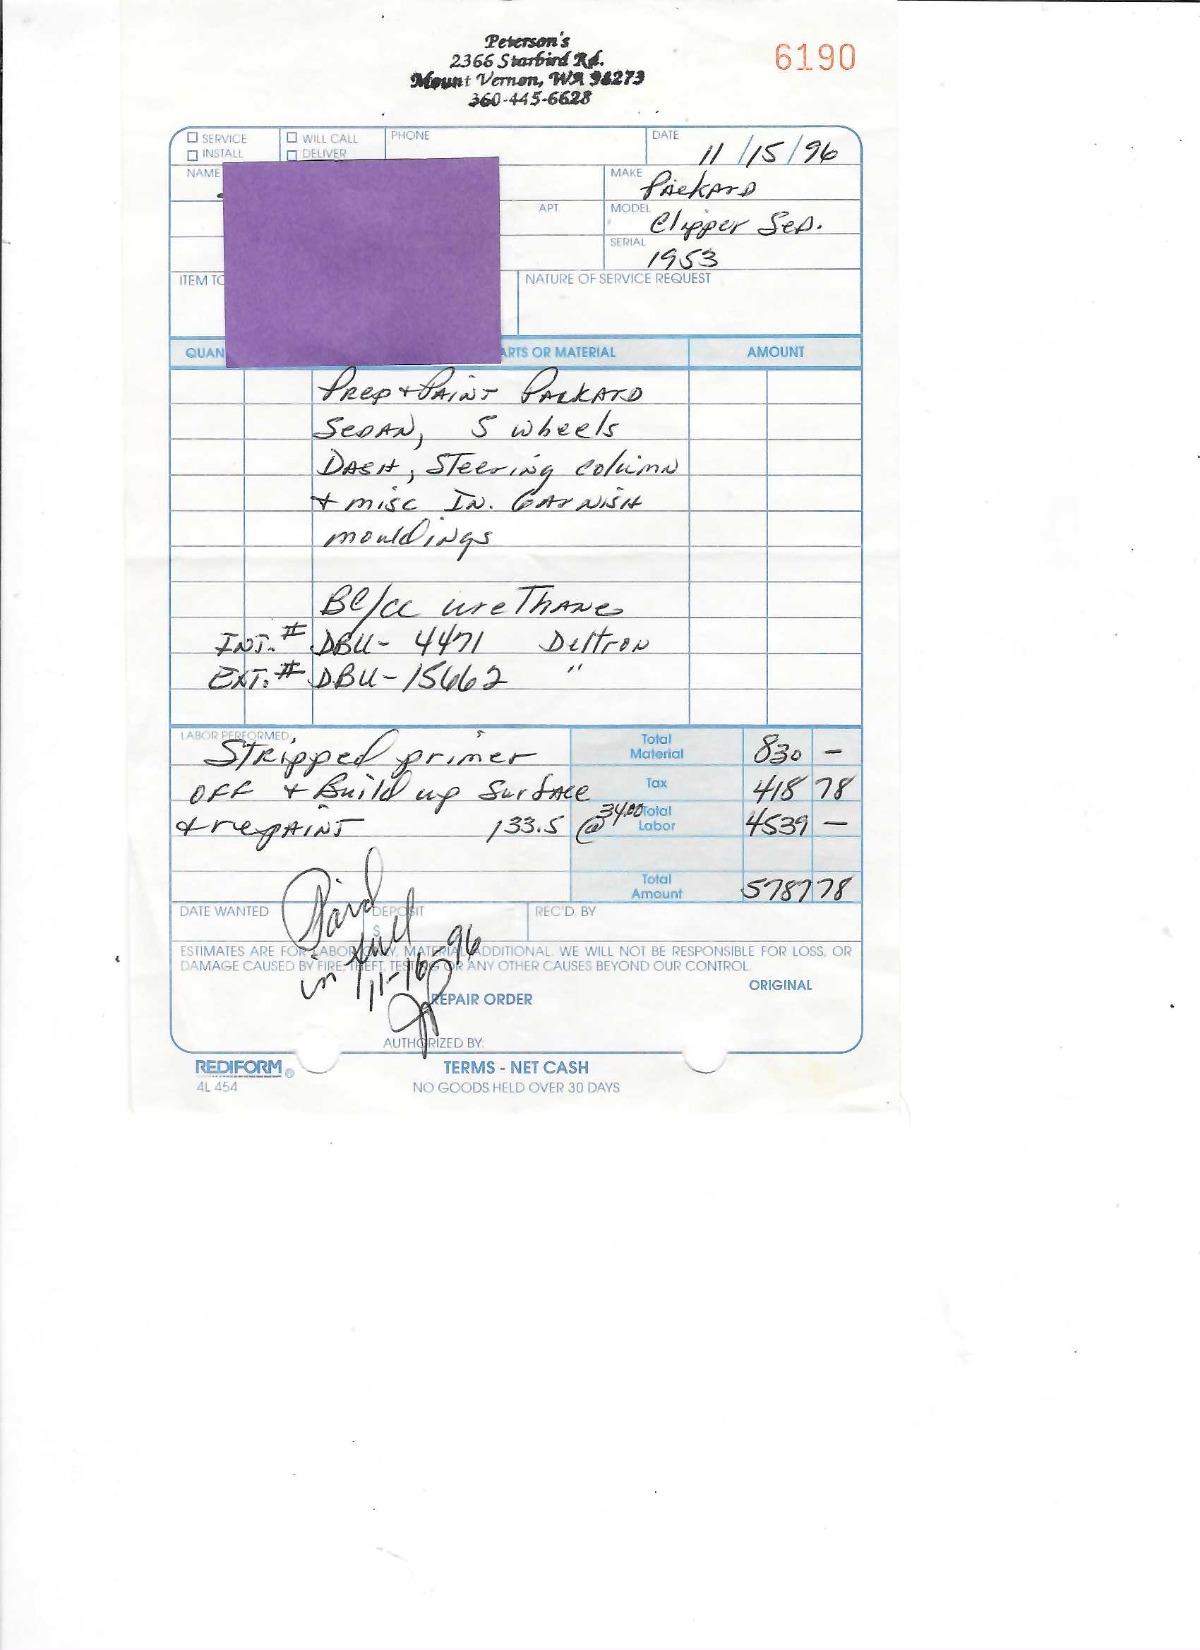 Peterson's
2366 Starbird Rd.
Mount Vernon, WA 98273
360-445-6628
6190
SERVICE WILL CALL PHONE DATE 11/15/96
INSTALL DELIVER
NAME MAKE Packard
APT. MODEL Clipper Sed.
SERIAL 1953
ITEM TO NATURE OF SERVICE REQUEST
QUAN ARTS OR MATERIAL AMOUNT
Prep + Paint Packard
Sedan, 5 wheels
Dash, Steering column
+ misc In. Garnish
mouldings
BC/CC urethane
Int. # DBU-4471 Deltron
Ext. # DBU-15662 "
LABOR PERFORMED:
Stripped primer Total Material 830 –
off + Build up Surface Tax 418 78
+ repaint 133.5 @ 34.00 Total Labor 4539 –
Total Amount 5787 78
DATE WANTED DEPOSIT $ REC'D. BY
Paid
in full
11-16-96
ESTIMATES ARE FOR LABOR ONLY, MATERIAL ADDITIONAL. WE WILL NOT BE RESPONSIBLE FOR LOSS, OR
DAMAGE CAUSED BY FIRE, THEFT, TESTING OR ANY OTHER CAUSES BEYOND OUR CONTROL.
ORIGINAL
REPAIR ORDER
AUTHORIZED BY:
REDIFORM® TERMS - NET CASH
4L 454 NO GOODS HELD OVER 30 DAYS